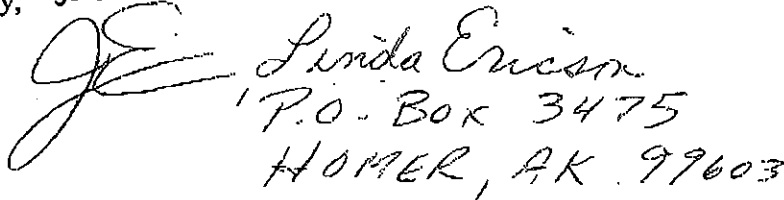 y,
JE Linda Ericson
P.O. Box 3475
HOMER, AK 99603